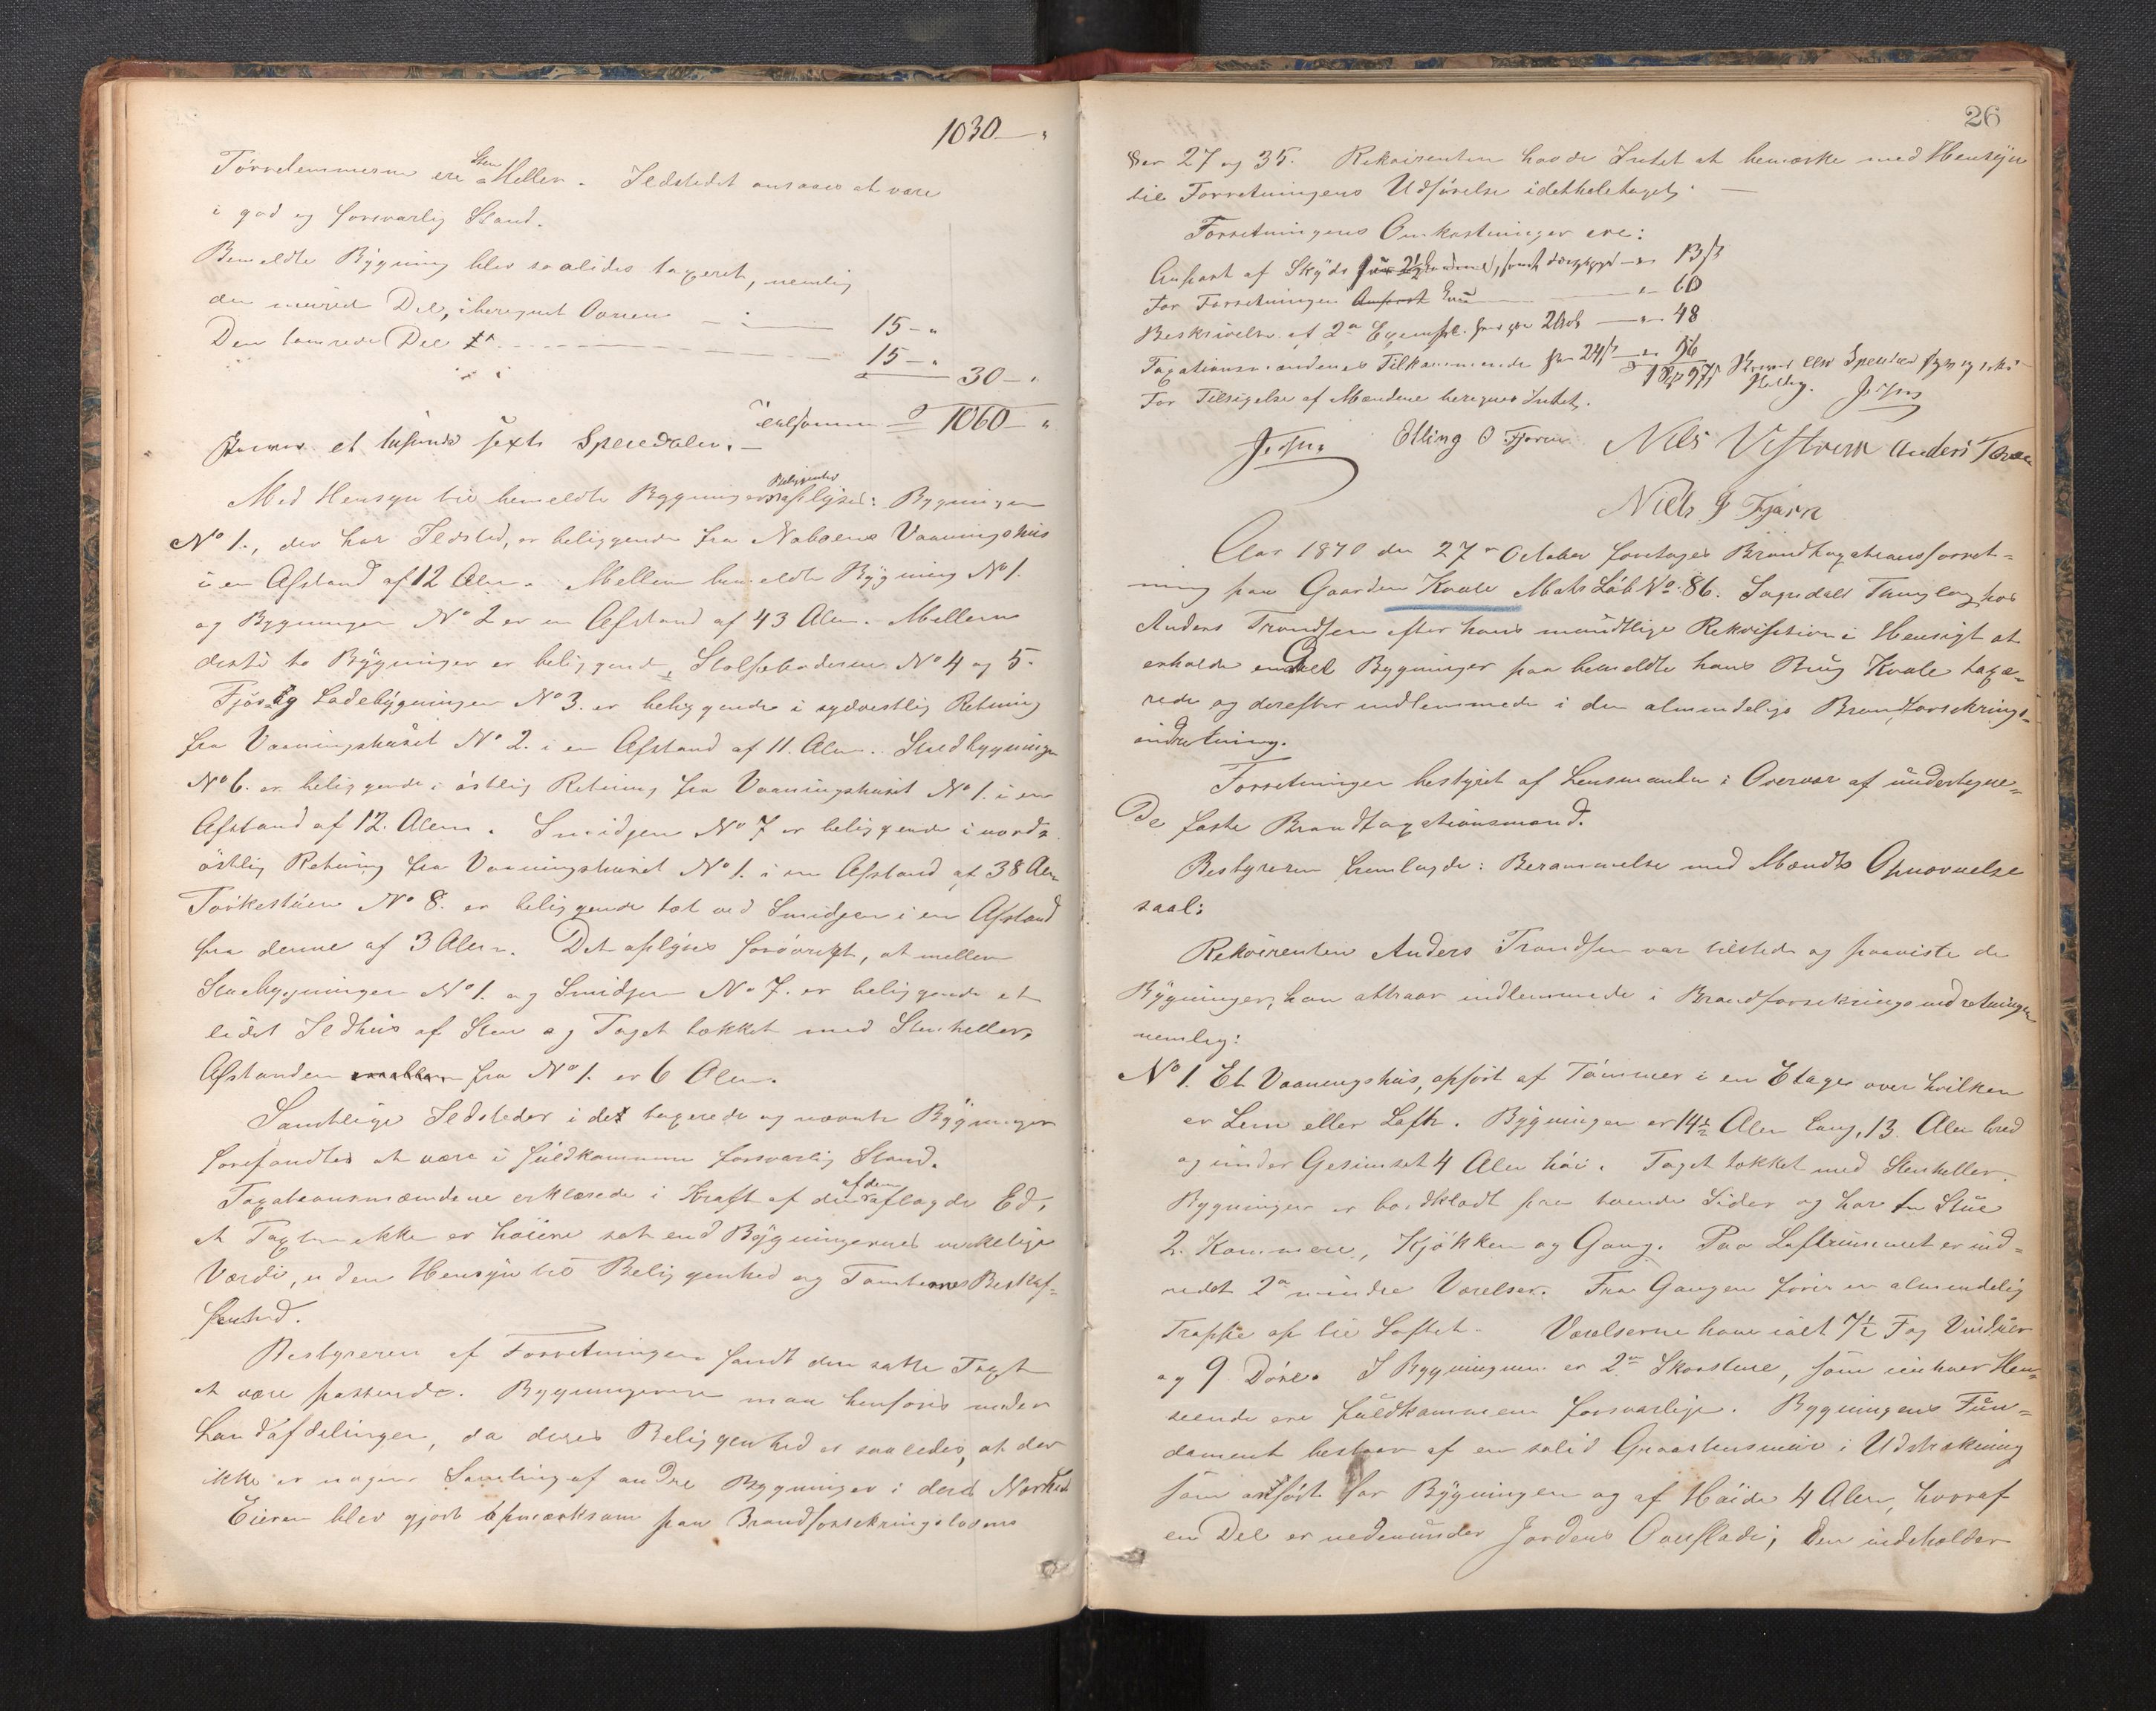 1030 – "
Tørrelemmerne ere Sten Heller. Ildstedet ansaaes at være
i god og forsvarlig Stand.
Bemeldte Bygning blev saaledes taxeret, nemlig
den murede Del, iberegnet Ovnen – 15 – "
Den tømrede Del til – 15 – "
30 – "
Tilsammen 1060 – "
et tusinde sexti Speciedaler. –
Med Hensyn til bemeldte Bygningers Beliggenhed oplyses: Bygningen
No 1., der har Ildsted, er beliggende fra Naboens Vaaningshus
i en Afstand af 12 Alen. Mellem bemeldte Bygning No 1.
og Bygningen No 2 er en Afstand af 43 Alen. Mellem
disse to Bygninger er beliggende Stolpeboderne No 4 og 5.
Fjøs og Ladebygningen No 3. er beliggende i sydvestlig Retning
fra Vaaningshuset No 2. i en Afstand af 11. Alen. Staldbygningen
No 6. er beliggende i østlig Retning fra Vaaningshuset No 1. i en
Afstand af 12. Alen. Smidjen No 7 er beliggende i nord-
østlig Retning fra Vaaningshuset No 1. i en Afstand af 38 Alen
Tørkestuen No 8. er beliggende tæt ved Smidjen i en Afstand
fra denne af 3 Alen. Det oplyses forøvrigt, at mellem
Stuebygningen No 1. og Smidjen No 7. er beliggende et
lidet Ildhus af Sten og Taget tækket med Stenheller,
Afstanden fra No 1. er 6 Alen.
Samtlige Ildsteder i det taxerede og nævnte Bygninger
forefandtes at være i fuldkommen forsvarlig Stand.
Taxationsmændene erklærede i Kraft af den af dem aflagde Ed,
at Taxten ikke er høiere sat end Bygningernes virkelige
Værdi, uden Hensyn til Beliggenhed og Tomternes Beskaf-
fenhed.
Bestyreren af Forretningen fandt den satte Taxt
at være passende. Bygningerne maa henføres under
Landafdelingen, da deres Beliggenhed er saaledes, at der
ikke er nogen Samling af andre Bygninger i dens Nærhed
Eieren blev gjort opmærksom paa Brandforsikringslovens
26
§er 27 og 35. Rekvirenten havde Intet at bemærke med Hensyn
til Forretningens Udførelse idetheletaget. –
Forretningens Omkostninger ere:
Anpart af Skyds 13 ß
For Forretningen 60
Beskrivelse af 2de Exempl. 48
Taxationsmændenes Tilkommende 24 ß 96
For Tilsigelse af Mændene beregnes Intet.
Elling O Fjærn Nils Vestrem Anders
Niels Fjærn
Aar 1870 den 27de October foretages Brandtaxationsforret-
ning paa Gaarden Kvale Matr Løb No. 86. Sogndals Thinglag hos
Anders Trondsen efter hans mundtlige Rekvisition i Hensigt at
erholde endel Bygninger paa bemeldte hans Brug Kvale taxe-
rede og derefter indlemmede i den almindelige Brandforsikrings-
indretning.
Forretningen bestyret af Lensmanden i Overvær af undertegne-
de faste Brandtaxationsmænd.
Bestyreren fremlagde: Berammelse med Mænds Opnævnelse
saal:
Rekvirenten Anders Trondsen var tilstede og paaviste de
Bygninger, han attraar indlemmede i Brandforsikringsindretningen
nemlig:
No 1. Et Vaaningshus, opført af Tømmer i en Etage over hvilken
er Lem eller Loft. Bygningen er 14½ Alen lang, 13. Alen bred
og under Gesimset 4 Alen høi. Taget tækket med Stenheller.
Bygningen er bordklædt paa tvende Sider og har en Stue
2. Kammere, Kjøkken og Gang. Paa Loftrummet er ind-
redet 2de mindre Værelser. Fra Gangen fører en almindelig
Trappe op til Loftet. Værelserne have ialt 7½ Fag Vinduer
og 9 Døre. I Bygningen er 2de Skorstene, som i enhver Hen-
seende ere fuldkommen forsvarlige. Bygningens Fun-
dament bestaar af en solid Graastensmur i Udstrækning
som anført for Bygningen og af Høide 4 Alen, hvoraf
en Del er nedenunder Jordens Overflade; den indeholder